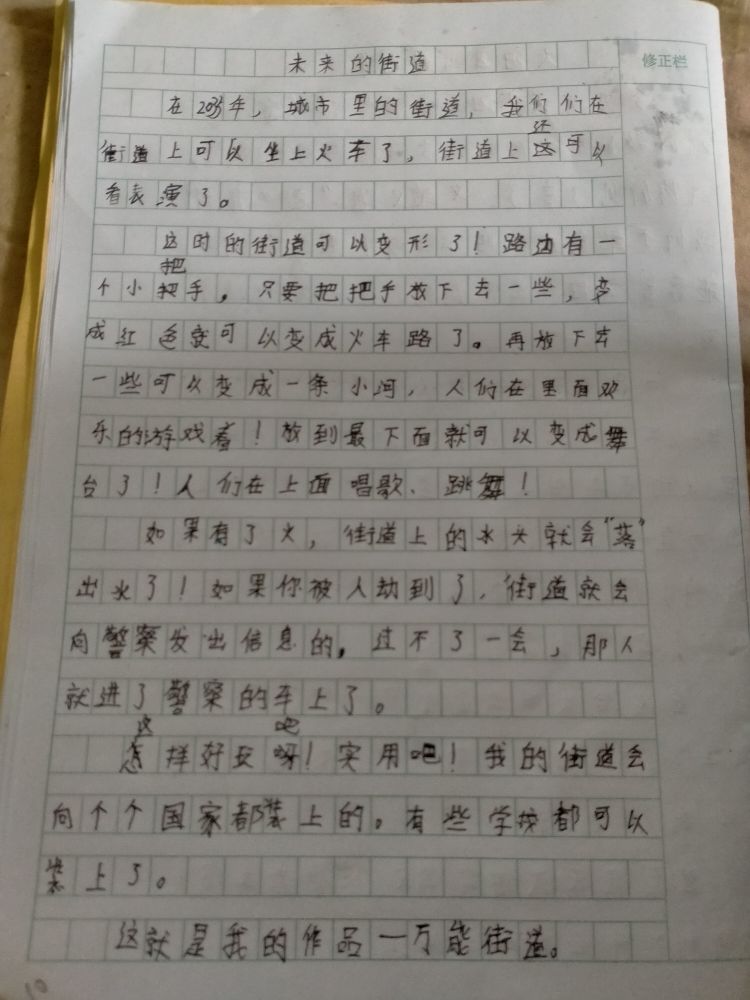 未来的街道
修正栏
在2035年，城市里的街道，我们们在
还
街道上可以坐上火车了，街道上这可以
看表演了。
这时的街道可以变形了！路边有一
把
个小把手，只要把把手放下去一些，变
成红色就可以变成火车路了。再放下去
一些可以变成一条小河，人们在里面欢
乐的游戏着！放到最下面就可以变成舞
台了！人们在上面唱歌、跳舞！
如果有了火，街道上的水头就会“落”
出水了！如果你被人劫到了，街道就会
向警察发出信息的，过不了一会，那人
就进了警察的车上了。
这 吧
怎样好玩呀！实用吧！我的街道会
向个个国家都装上的。有些学校都可以
装上了。
这就是我的作品一万能街道。
10